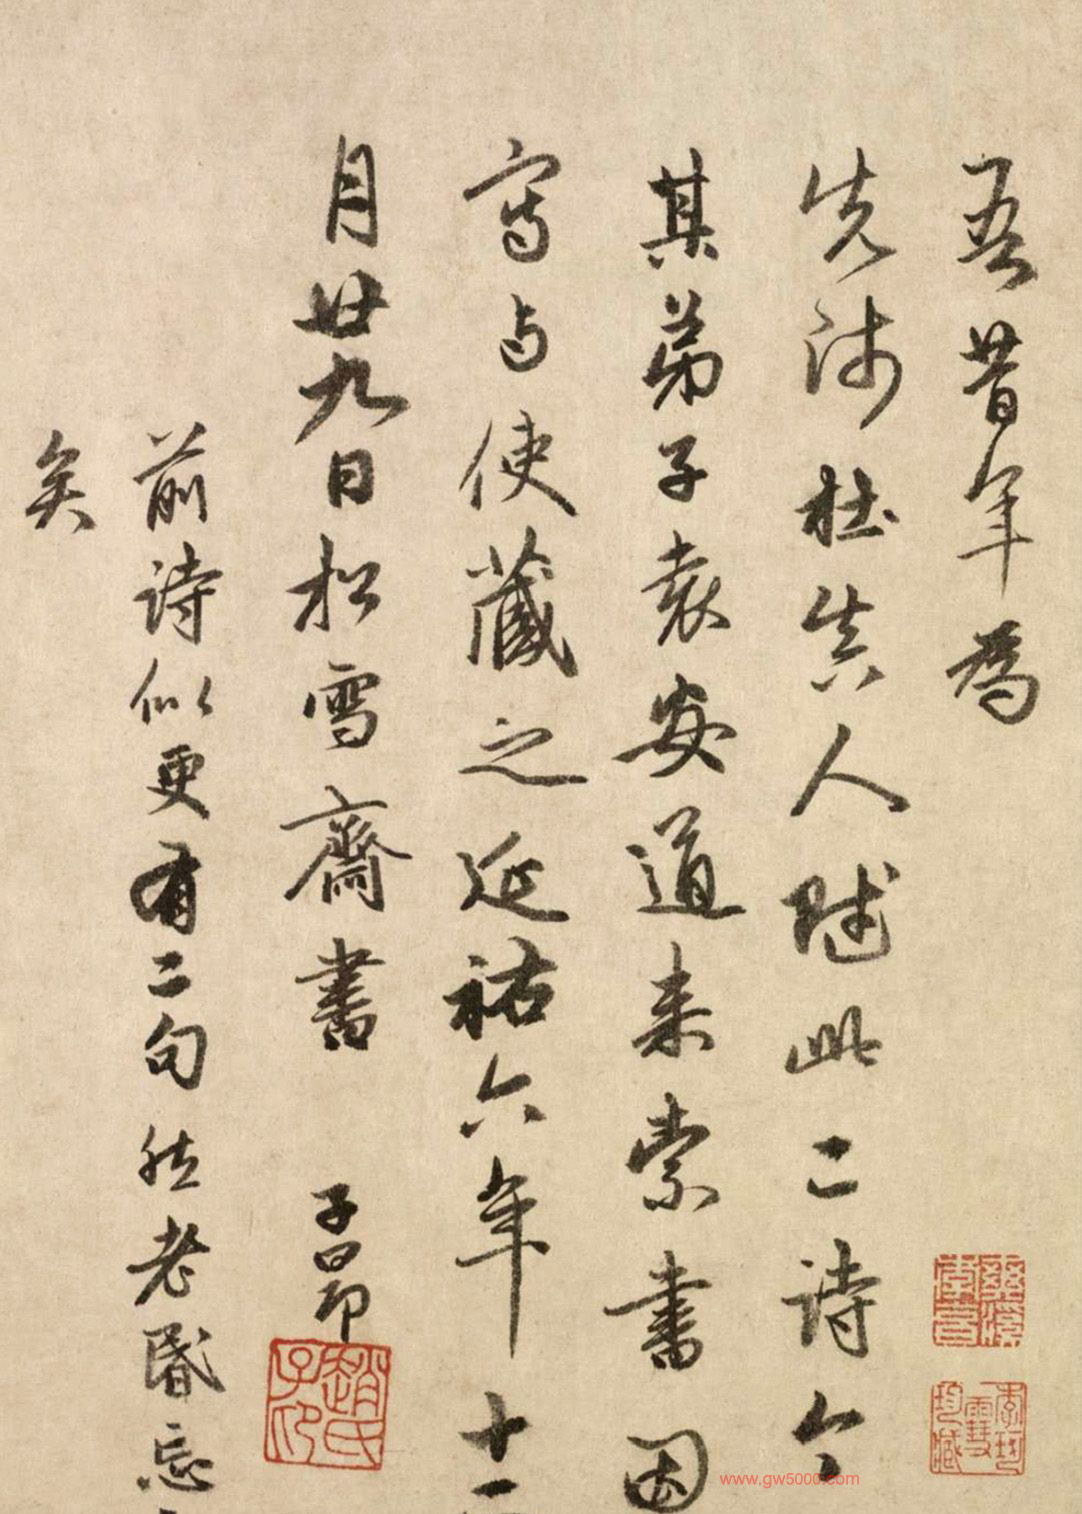 吾昔年為
先師杜真人賦此二詩今
其弟子袁安道来索書因
寫与使藏之延祐六年十
月廿九日松雪齋書 子昂
趙氏子昂
前詩似更有二句然老昏忘
矣
www.gw5000.com